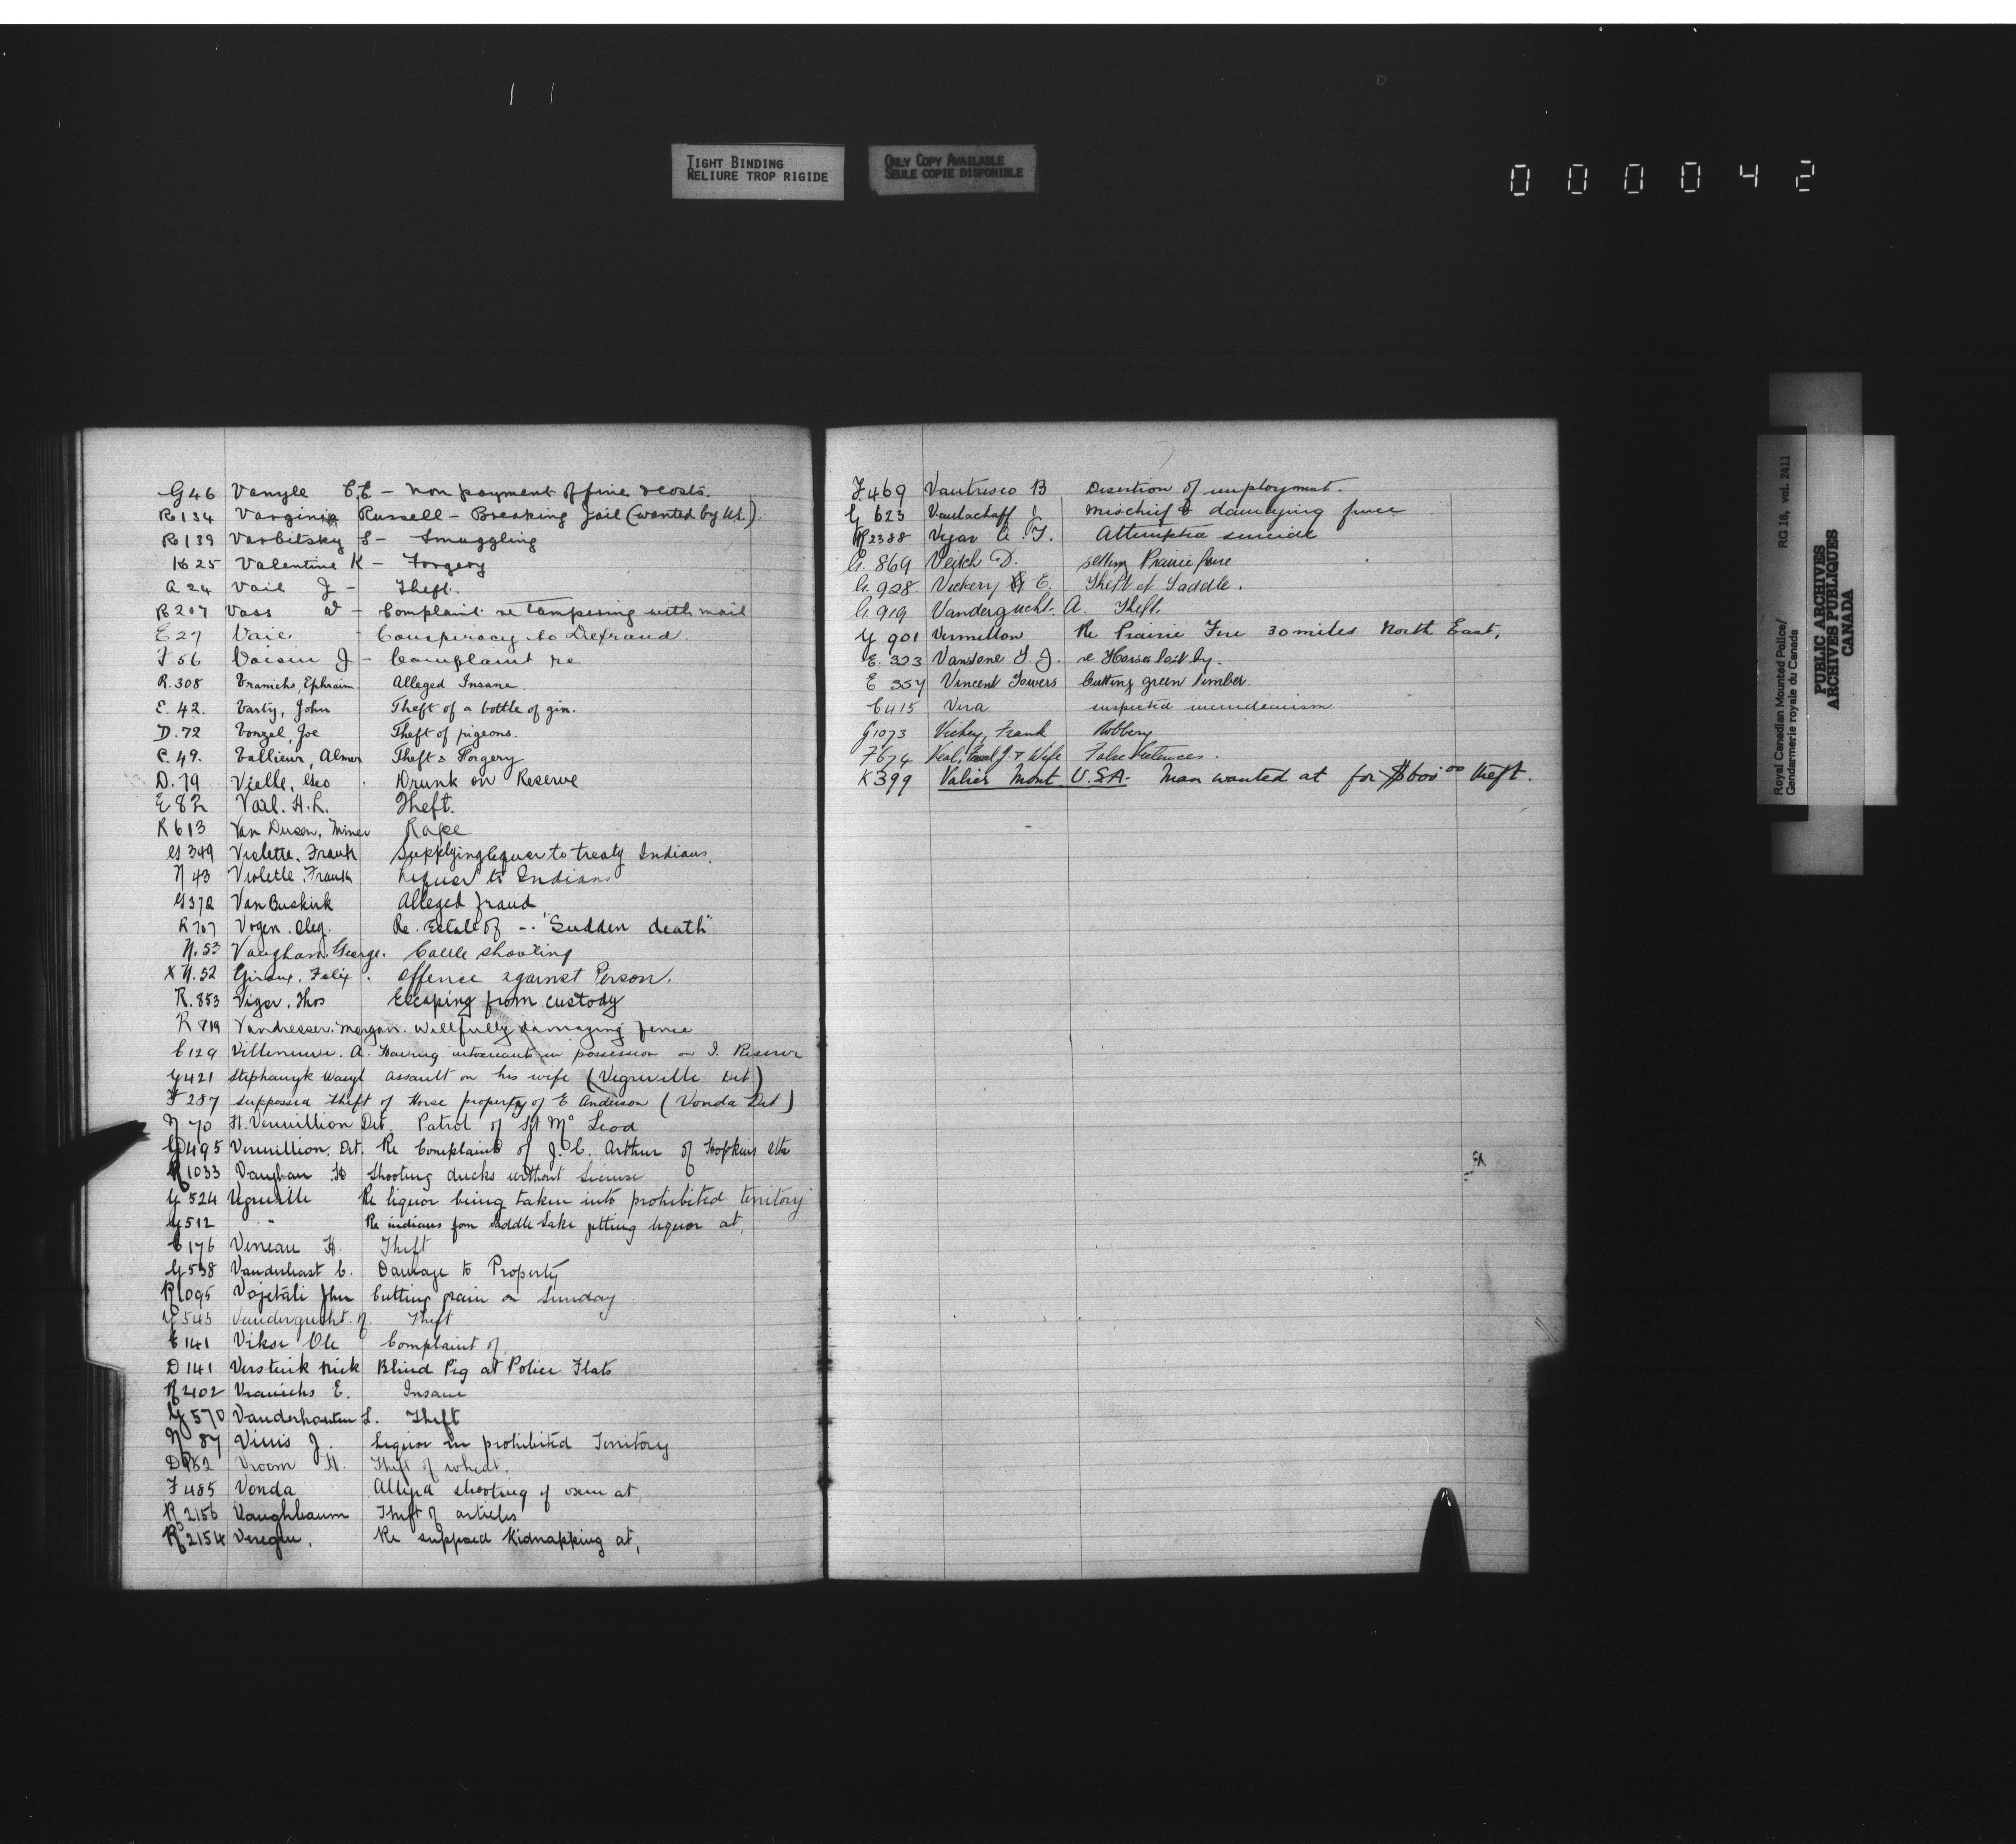 TIGHT BINDING
RELIURE TROP RIGIDE
ONLY COPY AVAILABLE
SEULE COPIE DISPONIBLE
000042
G 46 Vanyle C.E - Non payment of fine & costs.
R 134 Russell - Breaking Jail (wanted by US.)
R 139 Varbitsky S - Smuggling
K 25 Valentine K - Forgery
A 24 Vail J - Theft.
R 207 Vass W - Complaint re tampering with mail
E 27 Vaie - Conspiracy to Defraud.
F 56 Voisin J - Complaint re
R. 308 Vranichs, Ephraim. Alleged Insane.
E. 42. Varty, John Theft of a bottle of gin.
D. 72 Vonzel, Joe Theft of pigeons.
C. 49. Vallieur, Almer Theft & Forgery
D. 79 Vielle, Geo Drunk on Reserve
E 82 Vail. H. L. Theft.
R 613 Van Dusen, Miner Rape
G 349 Violette. Frank Supplying liquor to treaty Indians.
N 43 Violette. Frank Liquor to Indians
G 372 Van Buskirk Alleged fraud
R 707 Vogen. Oleg. Re. Estate of - "Sudden death"
N. 53 Vaughan. George. Cattle shooting
X N. 52 Giroux, Felix. Offence against Person.
R. 853 Viger. Thos Escaping from custody
R 819 Vandresser. Morgan. Willfully damaging fence
C 129 Villeneuve. A. Having intoxicants in possession on I. Reserve
G 421 Stephanyk Wasyl assault on his wife (Vegreville Det)
F 287 supposed theft of Horse property of E Anderson (Vonda Det)
N 70 Ft. Vermillion Det. Patrol of Sgt McLeod
G 495 Vermillion. Det. Re Complaint of J. C. Arthur of Hopkins
R 1033 Vaughan H Shooting ducks without license
G 524 Vegreville Re liquor being taken into prohibited territory
G 512 " Re indians from Saddle Lake getting liquor at,
C 176 Veneau H. Theft
G 538 Vanderhast C. Damage to Property
R 1095 Vojetali John Cutting grain on Sunday
G 545 Vandergucht. A. Theft
E 141 Vikse Ole Complaint of
D 141 Versterik Nick Blind Pig at Police Flats
R 2102 Vranichs E. Insane
G 570 Vanderhouten L. Theft
N 87 Vinis J. Liquor in prohibited Territory
D 152 Vroom H. Theft of wheat.
F 485 Vonda Alleged shooting of oxen at
R 2156 Vaughbaum Theft of articles
R 2154 Veregin, Re supposed Kidnapping at,
F. 469 Vautresco B Desertion of employment.
G 623 Vanlachoff J Mischief & damaging fence
R 2388 Vegar A. T. Attempted suicide
G. 869 Veitch D. setting Prairie fire
G. 928. Vickery E. Theft of Saddle.
G. 919 Vandergucht. A. Theft.
G 901 Vermilion Re Prairie Fire 30 miles North East,
E. 323 Vanstone S. J. re Horses lost by.
E 357 Vincent Towers Cutting green timber.
C 415 Vera suspected incendiarism
G 1073 Vickey, Frank Robbery
F 674 Veal, J. & Wife False Pretences.
K 399 Valier Mont. U.S.A. Man wanted at for $600.00 theft.
Royal Canadian Mounted Police/ RG 18, vol. 2411
Gendarmerie royale du Canada
PUBLIC ARCHIVES
ARCHIVES PUBLIQUES
CANADA